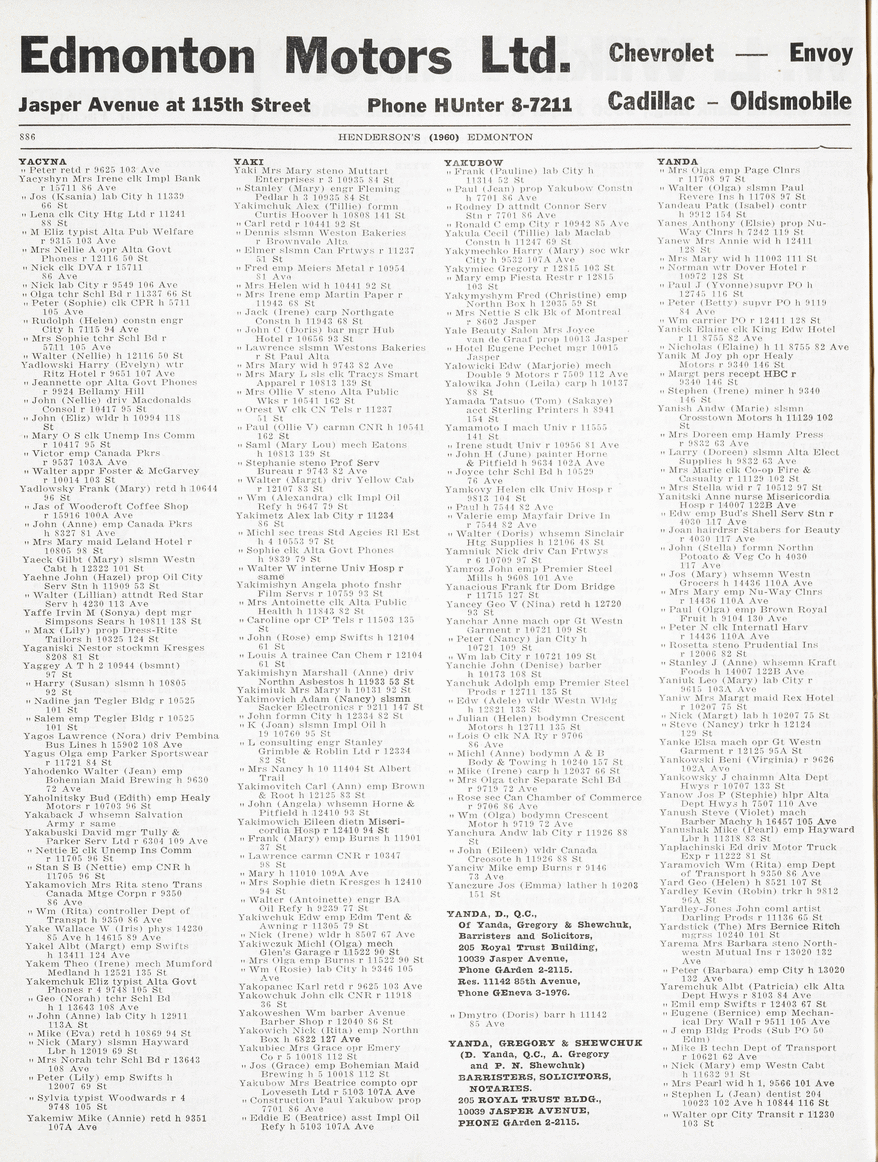 Edmonton Motors Ltd. Chevrolet — Envoy
Jasper Avenue at 115th Street Phone HUnter 8-7211 Cadillac – Oldsmobile
886 HENDERSON'S (1960) EDMONTON
YACYNA
" Peter retd r 9625 103 Ave
Yacyshyn Mrs Irene clk Impl Bank
r 15711 86 Ave
" Jos (Ksania) lab City h 11339
66 St
" Lena clk City Htg Ltd r 11241
88 St
" M Eliz typist Alta Pub Welfare
r 9315 103 Ave
" Mrs Nellie A opr Alta Govt
Phones r 12116 50 St
" Nick clk DVA r 15711
86 Ave
" Nick lab City r 9549 106 Ave
" Olga tchr Schl Bd r 11337 66 St
" Peter (Sophie) clk CPR h 5711
105 Ave
" Rudolph (Helen) constn engr
City h 7115 94 Ave
" Mrs Sophie tchr Schl Bd r
5711 105 Ave
" Walter (Nellie) h 12116 50 St
Yadlowski Harry (Evelyn) wtr
Ritz Hotel r 9651 107 Ave
" Jeannette opr Alta Govt Phones
r 9924 Bellamy Hill
" John (Nellie) driv Macdonalds
Consol r 10417 95 St
" John (Eliz) wldr h 10994 118
St
" Mary O S clk Unemp Ins Comm
r 10417 95 St
" Victor emp Canada Pkrs
r 9537 103A Ave
" Walter appr Foster & McGarvey
r 10014 103 St
Yadlowsky Frank (Mary) retd h 10644
96 St
" Jas of Woodcroft Coffee Shop
r 15916 100A Ave
" John (Anne) emp Canada Pkrs
h 8327 81 Ave
" Mrs Mary maid Leland Hotel r
10805 98 St
Yaeck Gilbt (Mary) slsmn Westn
Cabt h 12322 101 St
Yaehne John (Hazel) prop Oil City
Serv Stn h 11909 53 St
" Walter (Lillian) attndt Red Star
Serv h 4230 113 Ave
Yaffe Irvin M (Sonya) dept mgr
Simpsons Sears h 10811 138 St
" Max (Lily) prop Dress-Rite
Tailors h 10325 124 St
Yaganiski Nestor stockmn Kresges
8208 81 St
Yaggey A T h 2 10944 (bsmnt)
97 St
" Harry (Susan) slsmn h 10805
92 St
" Nadine jan Tegler Bldg r 10525
101 St
" Salem emp Tegler Bldg r 10525
101 St
Yagos Lawrence (Nora) driv Pembina
Bus Lines h 15902 108 Ave
Yagus Olga emp Parker Sportswear
r 11721 84 St
Yahodenko Walter (Jean) emp
Bohemian Maid Brewing h 9630
72 Ave
Yaholnitsky Bud (Edith) emp Healy
Motors r 10703 96 St
Yakaback J whsemn Salvation
Army r same
Yakabuski David mgr Tully &
Parker Serv Ltd r 6304 109 Ave
" Nettie E clk Unemp Ins Comm
r 11705 96 St
" Stan S B (Nettie) emp CNR h
11705 96 St
Yakamovich Mrs Rita steno Trans
Canada Mtge Corpn r 9350
86 Ave
" Wm (Rita) controller Dept of
Transpt h 9350 86 Ave
Yake Wallace W (Iris) phys 14230
85 Ave h 14615 89 Ave
Yakel Albt (Margt) emp Swifts
h 13411 124 Ave
Yakem Theo (Irene) mech Mumford
Medland h 12521 135 St
Yakemchuk Eliz typist Alta Govt
Phones r 4 9748 105 St
" Geo (Norah) tchr Schl Bd
h 1 13643 108 Ave
" John (Anne) lab City h 12911
113A St
" Mike (Eva) retd h 10869 94 St
" Nick (Mary) slsmn Hayward
Lbr h 12019 69 St
" Mrs Norah tchr Schl Bd r 13643
108 Ave
" Peter (Lily) emp Swifts h
12007 69 St
" Sylvia typist Woodwards r 4
9748 105 St
Yakemiw Mike (Annie) retd h 9351
107A Ave
YAKI
Yaki Mrs Mary steno Muttart
Enterprises r 3 10935 84 St
" Stanley (Mary) engr Fleming
Pedlar h 3 10935 84 St
Yakimchuk Alex (Tillie) formn
Curtis Hoover h 10808 141 St
" Carl retd r 10441 92 St
" Dennis slsmn Weston Bakeries
r Brownvale Alta
" Elmer slsmn Can Frtwys r 11237
51 St
" Fred emp Meiers Metal r 10954
81 Ave
" Mrs Helen wid h 10441 92 St
" Mrs Irene emp Martin Paper r
11943 68 St
" Jack (Irene) carp Northgate
Constn h 11943 68 St
" John C (Doris) bar mgr Hub
Hotel r 10656 93 St
" Lawrence slsmn Westons Bakeries
r St Paul Alta
" Mrs Mary wid h 9743 82 Ave
" Mrs Mary L sls clk Tracys Smart
Apparel r 10813 139 St
" Mrs Ollie V steno Alta Public
Wks r 10541 162 St
" Orest W clk CN Tels r 11237
51 St
" Paul (Ollie V) carmn CNR h 10541
162 St
" Saml (Mary Lou) mech Eatons
h 10813 139 St
" Stephanie steno Prof Serv
Bureau r 9743 82 Ave
" Walter (Margt) driv Yellow Cab
r 12107 83 St
" Wm (Alexandra) clk Impl Oil
Refy h 9647 79 St
Yakimetz Alex lab City r 11234
86 St
" Michl sec treas Std Agcies Rl Est
h 4 10553 97 St
" Sophie clk Alta Govt Phones
h 9839 79 St
" Walter W interne Univ Hosp r
same
Yakimishyn Angela photo fnshr
Film Servs r 10759 93 St
" Mrs Antoinette clk Alta Public
Health h 11843 82 St
" Caroline opr CP Tels r 11503 135
St
" John (Rose) emp Swifts h 12104
61 St
" Louis A trainee Can Chem r 12104
61 St
Yakimishyn Marshall (Anne) driv
Northn Asbestos h 11933 53 St
Yakimiuk Mrs Mary h 10131 92 St
Yakimovich Adam (Nancy) slsmn
Sacker Electronics r 9211 147 St
" John formn City h 12334 82 St
" K (Joan) slsmn Impl Oil h
19 10760 95 St
" L consulting engr Stanley
Grimble & Roblin Ltd r 12334
82 St
" Mrs Nancy h 10 11404 St Albert
Trail
Yakimovitch Carl (Ann) emp Brown
& Root h 12125 83 St
" John (Angela) whsemn Horne &
Pitfield h 12410 93 St
Yakimowich Eileen dietn Miseri-
cordia Hosp r 12410 94 St
" Frank (Mary) emp Burns h 11901
37 St
" Lawrence carmn CNR r 10347
98 St
" Mary h 11010 109A Ave
" Mrs Sophie dietn Kresges h 12410
94 St
" Walter (Antoinette) engr BA
Oil Refy h 9239 77 St
Yakiwchuk Edw emp Edm Tent &
Awning r 11305 79 St
" Nick (Irene) wldr h 8507 67 Ave
Yakiwczuk Michl (Olga) mech
Glen's Garage r 11522 90 St
" Mrs Olga emp Burns r 11522 90 St
" Wm (Rosie) lab City h 9346 105
Ave
Yakopanec Karl retd r 9625 103 Ave
Yakowchuk John clk CNR r 11918
36 St
Yakoweshen Wm barber Avenue
Barber Shop r 12040 86 St
Yakowich Nick (Rita) emp Northn
Box h 6822 127 Ave
Yakubiec Mrs Grace opr Emery
Co r 5 10018 112 St
" Jos (Grace) emp Bohemian Maid
Brewing h 5 10018 112 St
Yakubow Mrs Beatrice compto opr
Loveseth Ltd r 5103 107A Ave
" Construction Paul Yakubow prop
7701 86 Ave
" Eddie E (Beatrice) asst Impl Oil
Refy h 5103 107A Ave
YAKUBOW
" Frank (Pauline) lab City h
11314 52 St
" Paul (Jean) prop Yakubow Constn
h 7701 86 Ave
" Rodney D attndt Connor Serv
Stn r 7701 86 Ave
" Ronald C emp City r 10942 85 Ave
Yakula Cecil (Tillie) lab Maclab
Constn h 11247 69 St
Yakymechko Harry (Mary) soc wkr
City h 9532 107A Ave
Yakymiec Gregory r 12815 103 St
" Mary emp Fiesta Restr r 12815
103 St
Yakymyshym Fred (Christine) emp
North Box h 12035 59 St
" Mrs Nettie S clk Bk of Montreal
r 8602 Jasper
Yale Beauty Salon Mrs Joyce
van de Graaf prop 10013 Jasper
" Hotel Eugene Pechet mgr 10015
Jasper
Yalowicki Edw (Marjorie) mech
Double 9 Motors r 7509 112 Ave
Yalowika John (Leila) carp h 10137
88 St
Yamada Tatsuo (Tom) (Sakaye)
acct Sterling Printers h 8941
154 St
Yamamoto I mach Univ r 11555
141 St
" Irene studt Univ r 10956 81 Ave
" John H (June) painter Horne
& Pitfield h 9634 102A Ave
" Joyce tchr Schl Bd h 10529
76 Ave
Yamkovy Helen clk Univ Hosp r
9813 104 St
" Paul h 7544 82 Ave
" Valerie emp Mayfair Drive In
r 7544 82 Ave
" Walter (Doris) whsemn Sinclair
Htg Supplies h 12106 48 St
Yamniuk Nick driv Can Frtwys
r 6 10709 97 St
Yamroz John emp Premier Steel
Mills h 9608 101 Ave
Yanacious Frank ftr Dom Bridge
r 11715 127 St
Yancey Geo V (Nina) retd h 12720
93 St
Yanchar Anne mach opr Gt Westn
Garment r 10721 109 St
" Peter (Nancy) jan City h
10721 109 St
" Wm lab City r 10721 109 St
Yanchie John (Denise) barber
h 10173 108 St
Yanchuk Adolph emp Premier Steel
Prods r 12711 135 St
" Edw (Adele) wldr Westn Wldg
h 12821 133 St
" Julian (Helen) bodymn Crescent
Motors h 12711 135 St
" Lois O clk NA Ry r 9706
86 Ave
" Michl (Anne) bodymn A & B
Body & Towing h 10240 157 St
" Mike (Irene) carp h 12037 66 St
" Mrs Olga tchr Separate Schl Bd
r 9719 72 Ave
" Rose sec Can Chamber of Commerce
r 9706 86 Ave
" Wm (Olga) bodymn Crescent
Motor h 9719 72 Ave
Yanchura Andw lab City r 11926 88
St
" John (Eileen) wldr Canada
Creosote h 11926 88 St
Yanciw Mike emp Burns r 9146
73 Ave
Yanczure Jos (Emma) lather h 10203
151 St
YANDA, D., Q.C.,
Of Yanda, Gregory & Shewchuk,
Barristers and Solicitors,
205 Royal Trust Building,
10039 Jasper Avenue,
Phone GArden 2-2115.
Res. 11142 85th Avenue,
Phone GEneva 3-1976.
" Dmytro (Doris) barr h 11142
85 Ave
YANDA, GREGORY & SHEWCHUK
(D. Yanda, Q.C., A. Gregory
and P. N. Shewchuk)
BARRISTERS, SOLICITORS,
NOTARIES.
205 ROYAL TRUST BLDG.,
10039 JASPER AVENUE,
PHONE GArden 2-2115.
YANDA
" Mrs Olga emp Page Clnrs
r 11708 97 St
" Walter (Olga) slsmn Paul
Revere Ins h 11708 97 St
Yandeau Patk (Isabel) contr
h 9912 154 St
Yanes Anthony (Elsie) prop Nu-
Way Clnrs h 7242 119 St
Yanew Mrs Annie wid h 12411
128 St
" Mrs Mary wid h 11003 111 St
" Norman wtr Dover Hotel r
10972 128 St
" Paul J (Yvonne)supvr PO h
12745 116 St
" Peter (Betty) supvr PO h 9119
84 Ave
" Wm carrier PO r 12411 128 St
Yanick Elaine clk King Edw Hotel
r 11 8755 82 Ave
" Nicholas (Elaine) h 11 8755 82 Ave
Yanik M Joy ph opr Healy
Motors r 9340 146 St
" Margt pers recept HBC r
9340 146 St
" Stephen (Irene) miner h 9340
146 St
Yanish Andw (Marie) slsmn
Crosstown Motors h 11129 102
St
" Mrs Doreen emp Hamly Press
r 9832 63 Ave
" Larry (Doreen) slsmn Alta Elect
Supplies h 9832 63 Ave
" Mrs Marie clk Co-op Fire &
Casualty r 11129 102 St
" Mrs Stella wid r 7 10512 97 St
Yanitski Anne nurse Misericordia
Hosp r 14007 122B Ave
" Edw emp Bud's Shell Serv Stn r
4030 117 Ave
" Joan hairdrsr Stabers for Beauty
r 4030 117 Ave
" John (Stella) formn Northn
Potoato & Veg Co h 4030
117 Ave
" Jos (Mary) whsemn Westn
Grocers h 14436 110A Ave
" Mrs Mary emp Nu-Way Clnrs
r 14436 110A Ave
" Paul (Olga) emp Brown Royal
Fruit h 9104 130 Ave
" Peter N clk Internatl Harv
r 14436 110A Ave
" Rosetta steno Prudential Ins
r 12006 82 St
" Stanley J (Anne) whsemn Kraft
Foods h 14007 122B Ave
Yaniuk Leo (Mary) lab City r
9615 103A Ave
Yaniw Mrs Margt maid Rex Hotel
r 10207 75 St
" Nick (Margt) lab h 10207 75 St
" Steve (Nancy) trkr h 12124
129 St
Yanke Elsa mach opr Gt Westn
Garment r 12125 95A St
Yankowski Beni (Virginia) r 9626
102A Ave
Yankowsky J chainmn Alta Dept
Hwys r 10707 133 St
Yanow Jos P (Stephie) hlpr Alta
Dept Hwys h 7507 110 Ave
Yanush Steve (Violet) mach
Barber Machy h 16457 105 Ave
Yanushak Mike (Pearl) emp Hayward
Lbr h 11318 83 St
Yaplachinski Ed driv Motor Truck
Exp r 11222 81 St
Yaramovich Wm (Rita) emp Dept
of Transport h 9350 86 Ave
Yard Geo (Helen) h 8521 107 St
Yardley Kevin (Robin) trkr h 9812
96A St
Yardley-Jones John coml artist
Darling Prods r 11136 65 St
Yardstick (The) Mrs Bernice Ritch
mgrss 10240 101 St
Yarema Mrs Barbara steno North-
westn Mutual Ins r 13020 132
Ave
" Peter (Barbara) emp City h 13020
132 Ave
Yaremchuk Albt (Patricia) clk Alta
Dept Hwys r 8103 84 Ave
" Emil emp Swifts r 12403 67 St
" Eugene (Bernice) emp Mechan-
ical Dry Wall r 9511 105 Ave
" J emp Bldg Prods (Sub PO 50
Edm)
" Mike B techn Dept of Transport
r 10621 62 Ave
" Nick (Mary) emp Westn Cabt
h 11632 91 St
" Mrs Pearl wid h 1, 9566 101 Ave
" Stephen L (Jean) dentist 204
10023 102 Ave h 10844 116 St
" Walter opr City Transit r 11230
103 St